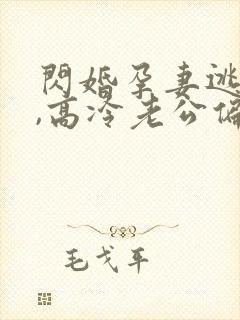 閃婚孕妻逃
,高冷老公偏
毛戈平